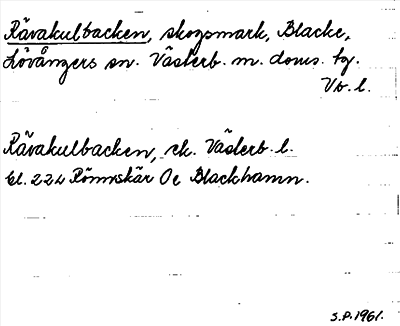 Rävakulbacken, skogsmark, Blacke,
Lövångers sn. Västerb. m. doms. tg.
Vb. l.
Rävakulbacken, ek. Västerb. l.
bl. 224 Rönnskär Öe Blackhamn.
S.P. 1961.